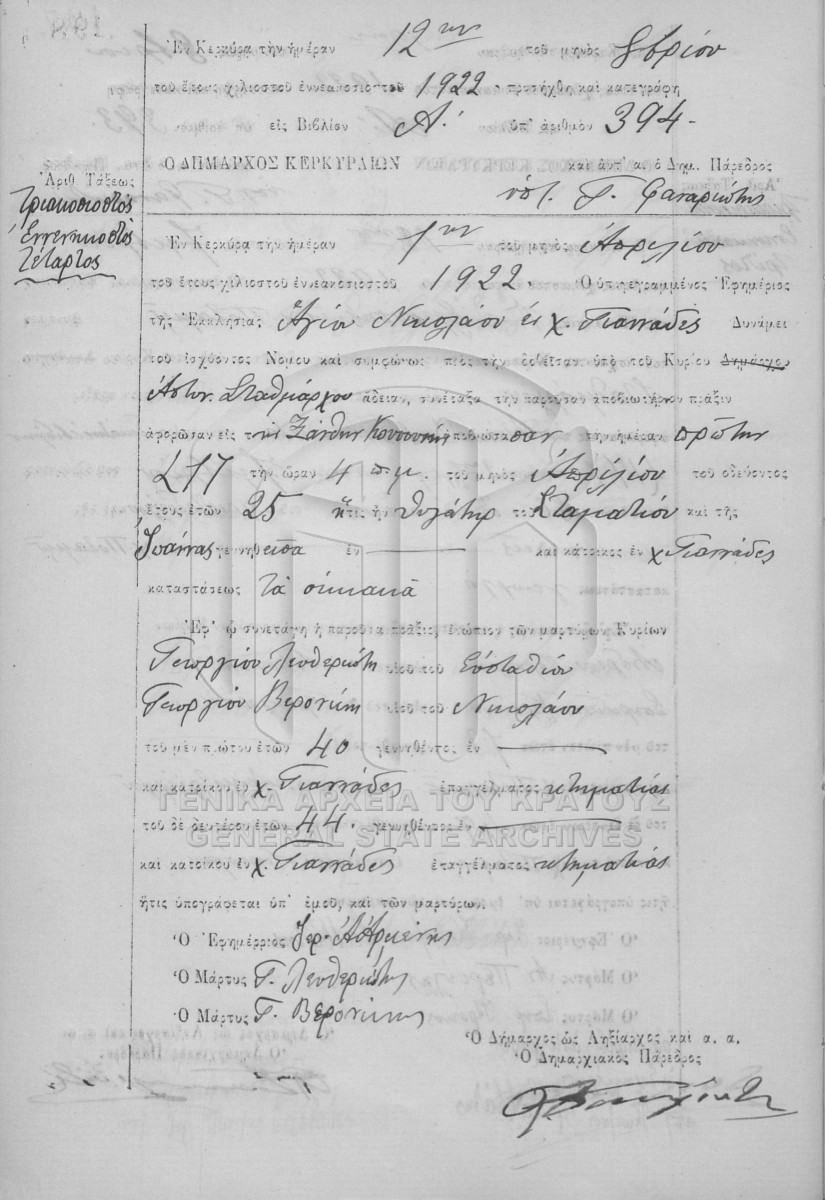 Ἐν Κερκύρᾳ τὴν ἡμέραν 12ην τοῦ μηνὸς 8βρίου
τοῦ ἔτους χιλιοστοῦ ἐννεακοσιοστοῦ 1922 προσήχθη καὶ κατεγράφη
εἰς Βιβλίον Α΄. ὑπ' ἀριθμὸν 394-
Ὁ ΔΗΜΑΡΧΟΣ ΚΕΡΚΥΡΑΙΩΝ καὶ ἀντ' α. ὁ Δημ. Πάρεδρος
Ἀριθ Τάξεως
Τριακοσιοστὸς
ἐννενηκοστὸς
τέταρτος
ὑπ. Γ. Φαναριώτης
Ἐν Κερκύρᾳ τὴν ἡμέραν 1ην τοῦ μηνὸς Ἀπριλίου
τοῦ ἔτους χιλιοστοῦ ἐννεακοσιοστοῦ 1922. Ὁ ὑπογεγραμμένος Ἐφημέριος
τῆς Ἐκκλησίας Ἁγίου Νικολάου εἰς χ. Γιαννάδες Δυνάμει
τοῦ ἰσχύοντος Νόμου καὶ συμφώνως πρὸς τὴν δοθεῖσαν ὑπὸ τοῦ Κυρίου Δημάρχου
Ἀστυν. Σταθμάρχου ἄδειαν, συνέταξα τὴν παροῦσαν ἀποβιωτήριον πρᾶξιν
ἀφορῶσαν εἰς τὴν Ξάνθην ἀποβιώσασαν τὴν ἡμέραν πρώτην
τὴν ὥραν 4 π.μ. τοῦ μηνὸς Ἀπριλίου τοῦ ὁδεύοντος
ἔτους ἐτῶν 25 ἥτις ἦν θυγάτηρ τοῦ Σταματίου καὶ τῆς
Ἰωάννας γεννηθεῖσα ἐν καὶ κάτοικος ἐν χ. Γιαννάδες
καταστάσεως τὰ οἰκιακὰ
Ἐφ' ᾧ συνετάγη ἡ παροῦσα πρᾶξις, ἐνώπιον τῶν μαρτύρων Κυρίων
Γεωργίου Λευθεριώτη υἱοῦ τοῦ Εὐσταθίου
Γεωργίου Βερονίκη υἱοῦ τοῦ Νικολάου
τοῦ μὲν πρώτου ἐτῶν 40 γεννηθέντος ἐν
καὶ κατοίκου ἐν χ. Γιαννάδες ἐπαγγέλματος κτηματίας
ΓΕΝΙΚΑ ΑΡΧΕΙΑ ΤΟΥ ΚΡΑΤΟΥΣ
τοῦ δὲ δευτέρου ἐτῶν 44. γεννηθέντος ἐν
GENERAL STATE ARCHIVES
καὶ κατοίκου ἐν χ. Γιαννάδες ἐπαγγέλματος κτηματίας
ἥτις ὑπογράφεται ὑπ' ἐμοῦ, καὶ τῶν μαρτύρων.
Ὁ Ἐφημέρριος Ἱερ.
Ὁ Μάρτυς Γ. Λευθεριώτης
Ὁ Μάρτυς Γ. Βερονίκης
Ὁ Δήμαρχος ὡς Ληξίαρχος καὶ α. α.
Ὁ Δημαρχιακὸς Πάρεδρος